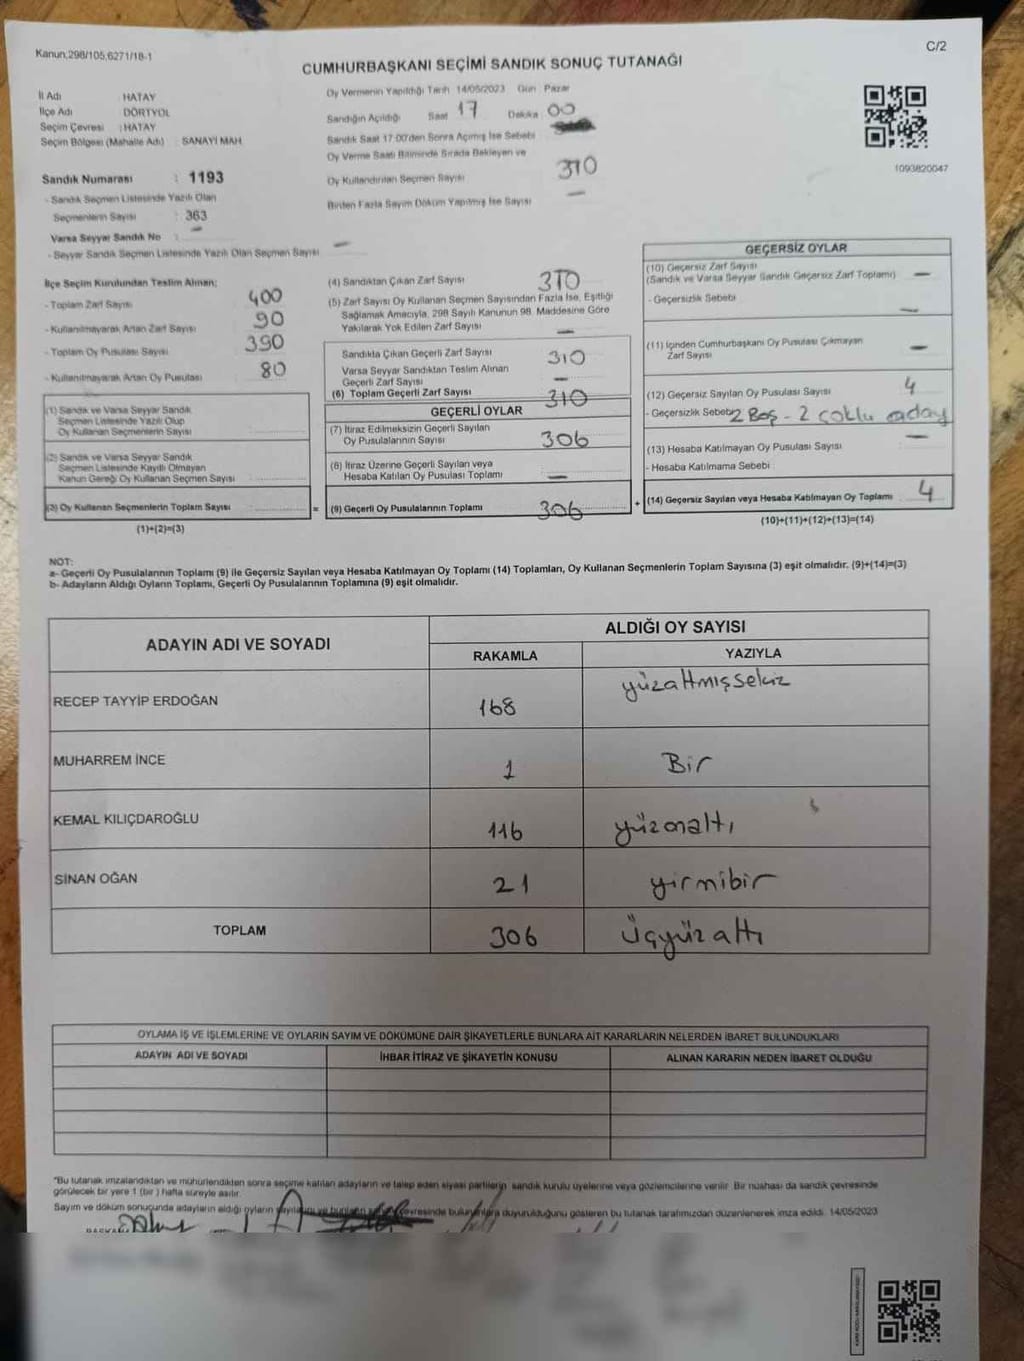 Kanun;298/105;6271/18-1
C/2
CUMHURBAŞKANI SEÇİMİ SANDIK SONUÇ TUTANAĞI
İl Adı : HATAY
İlçe Adı : DÖRTYOL
Seçim Çevresi : HATAY
Seçim Bölgesi (Mahalle Adı) : SANAYİ MAH
Sandık Numarası : 1193
- Sandık Seçmen Listesinde Yazılı Olan
Seçmenlerin Sayısı : 363
Varsa Seyyar Sandık No : –
- Seyyar Sandık Seçmen Listesinde Yazılı Olan Seçmen Sayısı : –
Oy Vermenin Yapıldığı Tarih 14/05/2023 Gün Pazar
Sandığın Açıldığı Saat 17 Dakika 00
Sandık Saat 17:00'den Sonra Açılmış İse Sebebi
Oy Verme Saati Bitiminde Sırada Bekleyen ve
Oy Kullandırılan Seçmen Sayısı 310
Birden Fazla Sayım Döküm Yapılmış İse Sayısı –
1093820047
İlçe Seçim Kurulundan Teslim Alınan;
- Toplam Zarf Sayısı 400
- Kullanılmayarak Artan Zarf Sayısı 90
- Toplam Oy Pusulası Sayısı 390
- Kullanılmayarak Artan Oy Pusulası 80
(1) Sandık ve Varsa Seyyar Sandık
Seçmen Listesinde Yazılı Olup
Oy Kullanan Seçmenlerin Sayısı
(2) Sandık ve Varsa Seyyar Sandık
Seçmen Listesinde Kayıtlı Olmayan
Kanun Gereği Oy Kullanan Seçmen Sayısı
(3) Oy Kullanan Seçmenlerin Toplam Sayısı
(1)+(2)=(3)
=
(4) Sandıktan Çıkan Zarf Sayısı 310
(5) Zarf Sayısı Oy Kullanan Seçmen Sayısından Fazla İse, Eşitliği
Sağlamak Amacıyla, 298 Sayılı Kanunun 98. Maddesine Göre
Yakılarak Yok Edilen Zarf Sayısı –
Sandıkta Çıkan Geçerli Zarf Sayısı 310
Varsa Seyyar Sandıktan Teslim Alınan
Geçerli Zarf Sayısı –
(6) Toplam Geçerli Zarf Sayısı 310
GEÇERLİ OYLAR
(7) İtiraz Edilmeksizin Geçerli Sayılan
Oy Pusulalarının Sayısı 306
(8) İtiraz Üzerine Geçerli Sayılan veya
Hesaba Katılan Oy Pusulası Toplamı –
(9) Geçerli Oy Pusulalarının Toplamı 306
+
GEÇERSİZ OYLAR
(10) Geçersiz Zarf Sayısı
(Sandık ve Varsa Seyyar Sandık Geçersiz Zarf Toplamı) –
- Geçersizlik Sebebi –
(11) İçinden Cumhurbaşkanı Oy Pusulası Çıkmayan
Zarf Sayısı –
(12) Geçersiz Sayılan Oy Pusulası Sayısı 4
- Geçersizlik Sebebi 2 Boş - 2 çoklu aday
(13) Hesaba Katılmayan Oy Pusulası Sayısı –
- Hesaba Katılmama Sebebi
(14) Geçersiz Sayılan veya Hesaba Katılmayan Oy Toplamı 4
(10)+(11)+(12)+(13)=(14)
NOT:
a- Geçerli Oy Pusulalarının Toplamı (9) ile Geçersiz Sayılan veya Hesaba Katılmayan Oy Toplamı (14) Toplamları, Oy Kullanan Seçmenlerin Toplam Sayısına (3) eşit olmalıdır. (9)+(14)=(3)
b- Adayların Aldığı Oyların Toplamı, Geçerli Oy Pusulalarının Toplamına (9) eşit olmalıdır.
ADAYIN ADI VE SOYADI
ALDIĞI OY SAYISI
RAKAMLA YAZIYLA
RECEP TAYYİP ERDOĞAN 168 yüzaltmışsekiz
MUHARREM İNCE 1 Bir
KEMAL KILIÇDAROĞLU 116 yüzonaltı
SİNAN OĞAN 21 yirmibir
TOPLAM 306 Üçyüzaltı
OYLAMA İŞ VE İŞLEMLERİNE VE OYLARIN SAYIM VE DÖKÜMÜNE DAİR ŞİKAYETLERLE BUNLARA AİT KARARLARIN NELERDEN İBARET BULUNDUKLARI
ADAYIN ADI VE SOYADI İHBAR İTİRAZ VE ŞİKAYETİN KONUSU ALINAN KARARIN NEDEN İBARET OLDUĞU
"Bu tutanak imzalandıktan ve mühürlendikten sonra seçime katılan adayların ve talep eden siyasi partilerin sandık kurulu üyelerine veya gözlemcilerine verilir. Bir nüshası da sandık çevresinde
görülecek bir yere 1 (bir) hafta süreyle asılır.
Sayım ve döküm sonucunda adayların aldığı oyların sayıları ve bunların çevresinde bulunanlara duyurulduğunu gösteren bu tutanak tarafımızdan düzenlenerek imza edildi. 14/05/2023